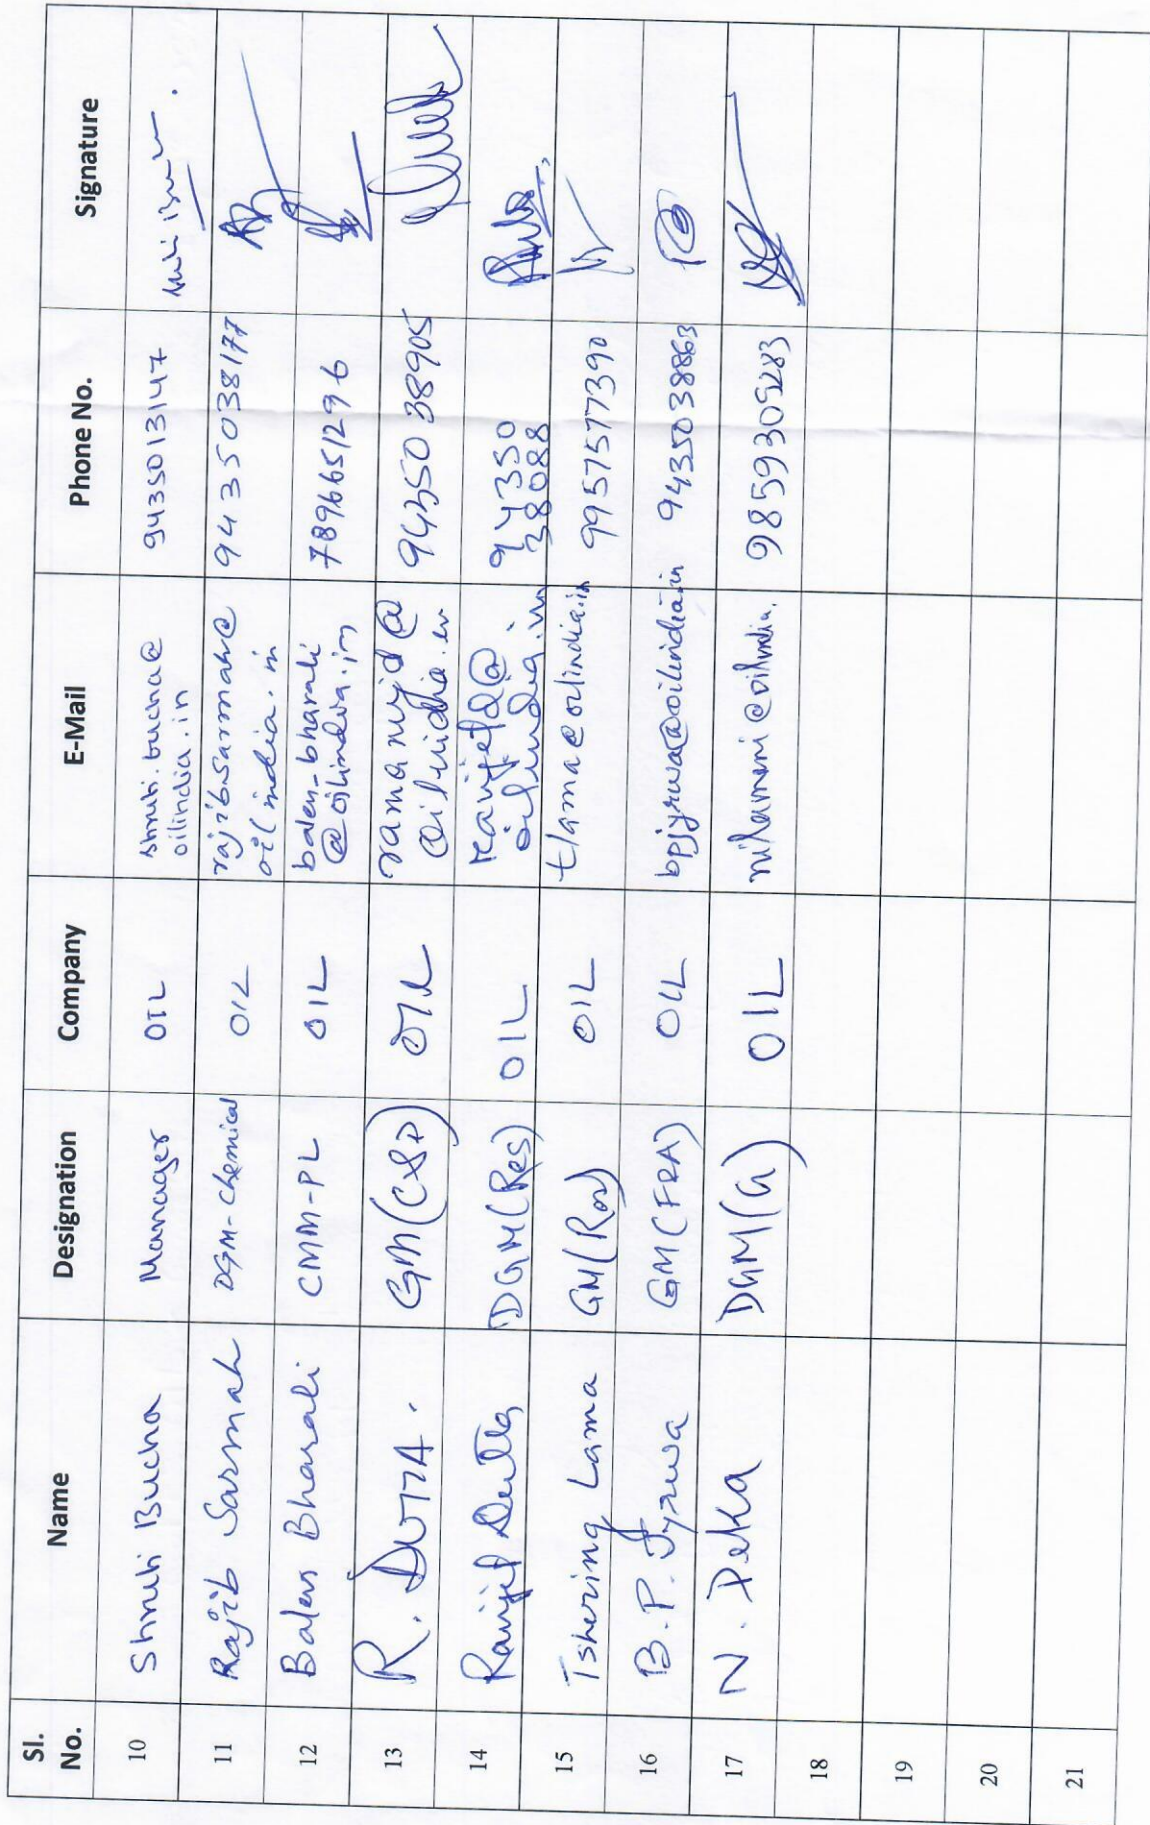 Sl. No. Name Designation Company E-Mail Phone No. Signature
10 Shruti Bucha Manager OIL shruti.bucha@
oilindia.in 9435013147
11 Rajib Sarmah DGM-Chemical OIL rajib.sarmah@
oilindia.in 9435038177
12 Balen Bharali CMM-PL OIL balen-bharali
@oilindia.in 7896651296
13 R. DUTTA. GM(C&P) OIL ramanujd@
oilindia.in 9435038905
14 Ranjit Dutta DGM(Res) OIL ranjitd@
oilindia.in 94350
38088
15 Tshering Lama GM OIL tlama@oilindia.in 9957577390
16 B.P. Jyrwa GM(F&A) OIL bpjyrwa@oilindia.in 9435038863
17 N. Deka DGM(G) OIL @oilindia. 9859305283
18
19
20
21